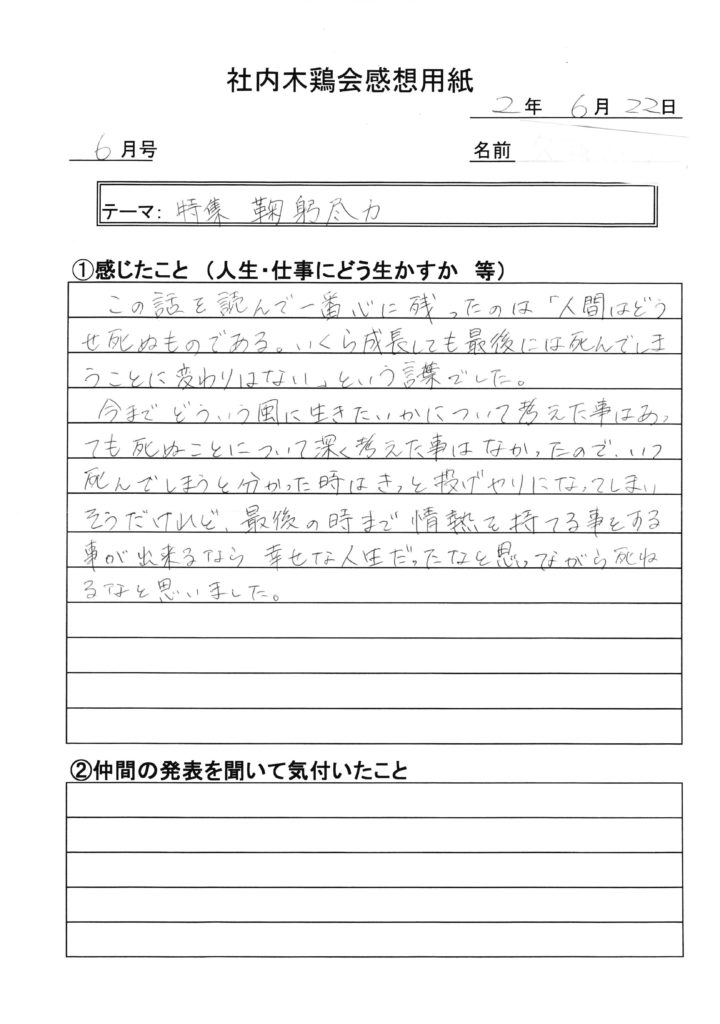 社内木鶏会感想用紙
2年 6月 22日
6月号
名前
テーマ: 特集 鞠躬尽力
①感じたこと (人生・仕事にどう生かすか 等)
この話を読んで一番心に残ったのは「人間はどう
せ死ぬものである。いくら成長しても最後には死んでしま
うことに変わりはない」という言葉でした。
今までどういう風に生きたいかについて考えた事はあっ
ても死ぬことについて深く考えた事はなかったので、いつ
死んでしまうと分かった時はきっと投げやりになってしまい
そうだけれど、最後の時まで情熱を持てる事をする
事が出来るなら幸せな人生だったなと思いながら死ね
るなと思いました。
②仲間の発表を聞いて気付いたこと